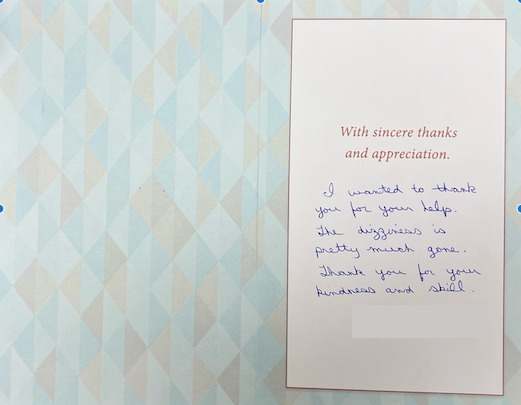 With sincere thanks
and appreciation.
I wanted to thank
you for your help.
The dizziness is
pretty much gone.
Thank you for your
kindness and skill.